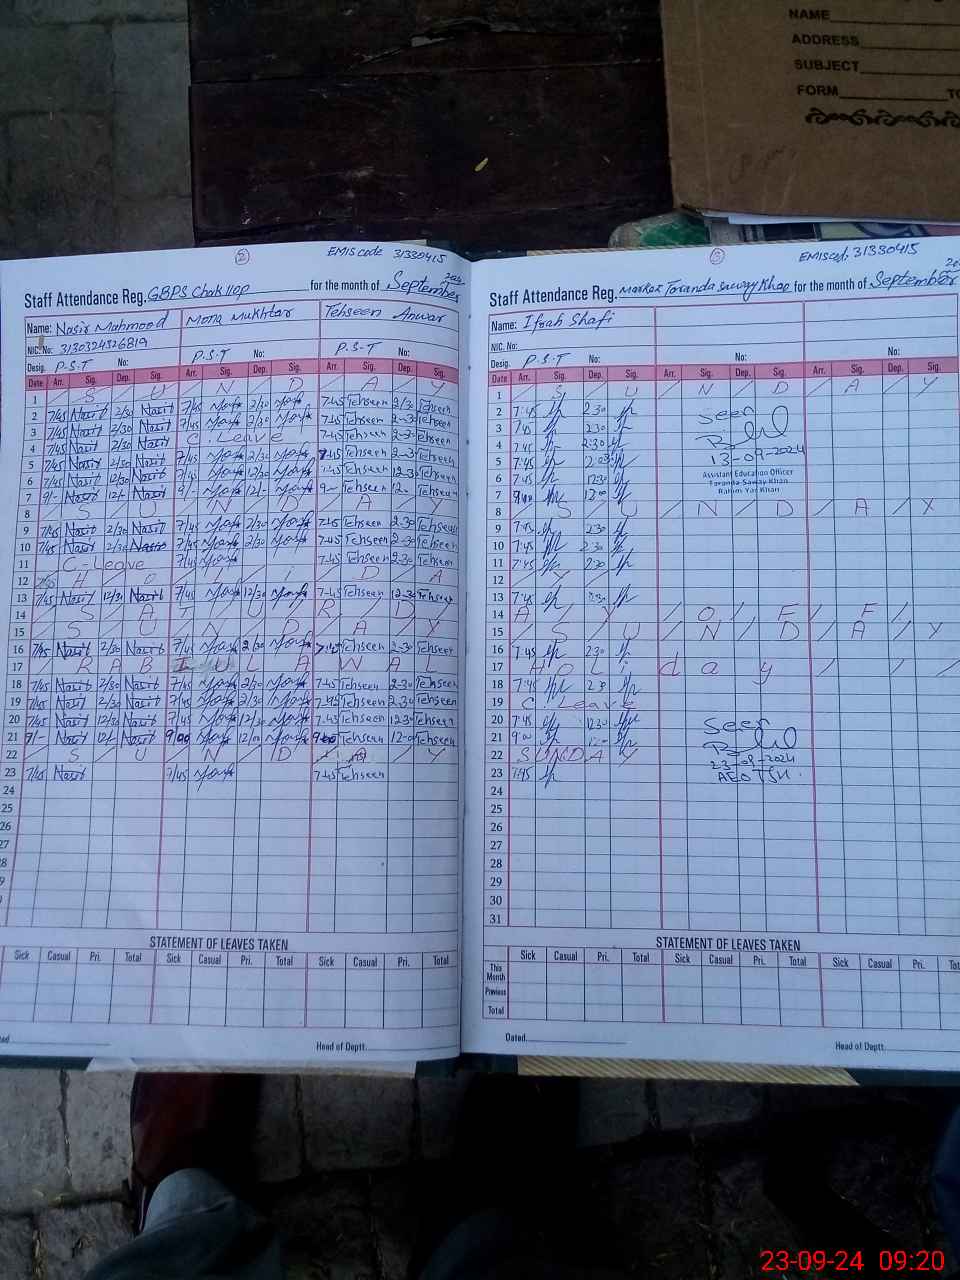 NAME
ADDRESS
SUBJECT
FORM TO
2
EMIS code 31330415
Staff Attendance Reg. GBPS Chak 110P for the month of September
Name: Nasir Mahmood Mona Mukhtar Tehseen Anwar
NIC. No: 3130324526819
Desig. P.S.T No: P.S.T No: P.S.T No:
Date Arr. Sig. Dep. Sig. Arr. Sig. Dep. Sig. Arr. Sig. Dep. Sig.
1 S U N D A Y
2 7/45 Nasir 2/30 Nasir 7/45 2/30 7-45 Tehseen 2/30 Tehseen
3 7/45 Nasir 2/30 Nasir 7/45 2/30 7-45 Tehseen 2-30 Tehseen
4 7/45 Nasir 2/30 Nasir C. Leave 7-45 Tehseen 2-30 Tehseen
5 7/45 Nasir 2/30 Nasir 7/45 2/30 7-45 Tehseen 2-30 Tehseen
6 7/45 Nasir 12/30 Nasir 7/45 12/30 7-45 Tehseen 12-30 Tehseen
7 9/- Nasir 12/- Nasir 9/- 12/- 9- Tehseen 12- Tehseen
8 S U N D A Y
9 7/45 Nasir 2/30 Nasir 7/45 2/30 7-45 Tehseen 2-30 Tehseen
10 7/45 Nasir 2/30 Nasir 7/45 2/30 7-45 Tehseen 2-30 Tehseen
11 C-Leave 7/45 7-45 Tehseen 2-30 Tehseen
12 H O L i D A
13 7/45 Nasir 12/30 Nasir 7/45 12/30 7-45 Tehseen 12-30 Tehseen
14 S A T U R D
15 S U N D A Y
16 7/45 Nasir 2/30 Nasir 7/45 2/30 7-45 Tehseen 2-30 Tehseen
17 R A B I U L A W A L
18 7/45 Nasir 2/30 Nasir 7/45 2/30 7-45 Tehseen 2-30 Tehseen
19 7/45 Nasir 2/30 Nasir 7/45 2/30 7-45 Tehseen 2-30 Tehseen
20 7/45 Nasir 12/30 Nasir 7/45 12/30 7-45 Tehseen 12-30 Tehseen
21 9/- Nasir 12/- Nasir 9/00 12/00 9-00 Tehseen 12-0 Tehseen
22 S U N D A Y
23 7/45 Nasir 7/45 7-45 Tehseen
24
25
26
27
28
9
STATEMENT OF LEAVES TAKEN
Sick Casual Pri. Total Sick Casual Pri. Total Sick Casual Pri. Total
Head of Deptt.
3
EMIS code 31330415
Staff Attendance Reg. Markaz Taranda Saway Khan for the month of September
Name: Ifrah Shafi
NIC. No:
Desig. P.S.T No: No: No:
Date Arr. Sig. Dep. Sig. Arr. Sig. Dep. Sig. Arr. Sig. Dep. Sig.
1 S U N D A Y
2 7:45 2:30 Seen
3 7:45 2:30
4 7:45 2:30 13-09-2024
5 7:45 2:30 Assistant Education Officer
6 7:45 12:30 Taranda Saway Khan
7 9:00 12:00 Rahim Yar Khan
8 S U N D A Y
9 7:45 2:30
10 7:45 2:30
11 7:45 2:30
12 Y
13 7:45
14 A Y O F F
15 S U N D A Y
16 7:45 2:30
17 HOLi day
18 7:45 2:30
19 C Leave
20 7:45 12:30 Seen
21 9:00 12:00
22 SUNDAY 23-09-2024
23 7:45 AEO TSK.
24
25
26
27
28
29
30
31
STATEMENT OF LEAVES TAKEN
Sick Casual Pri. Total Sick Casual Pri. Total Sick Casual Pri. Total
This Month
Previous
Total
Dated
Head of Deptt.
23-09-24 09:20